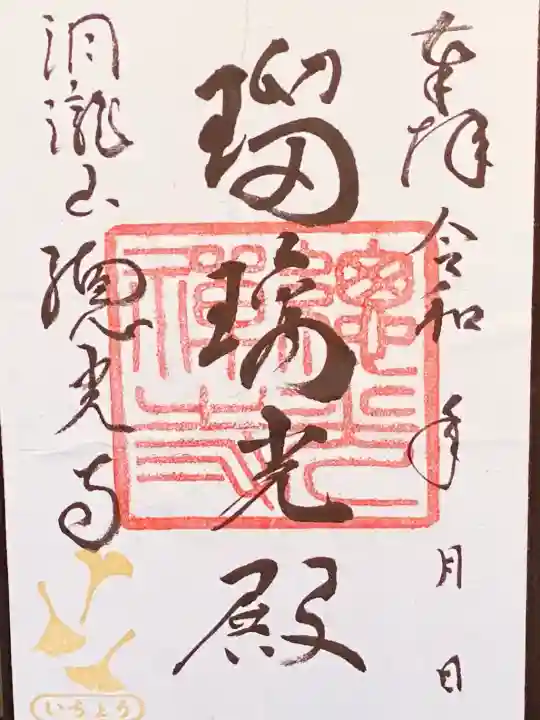 奉拝 令和 年 月 日
瑠璃光殿
洞瀧山 總光寺
總光禪寺
いちょう